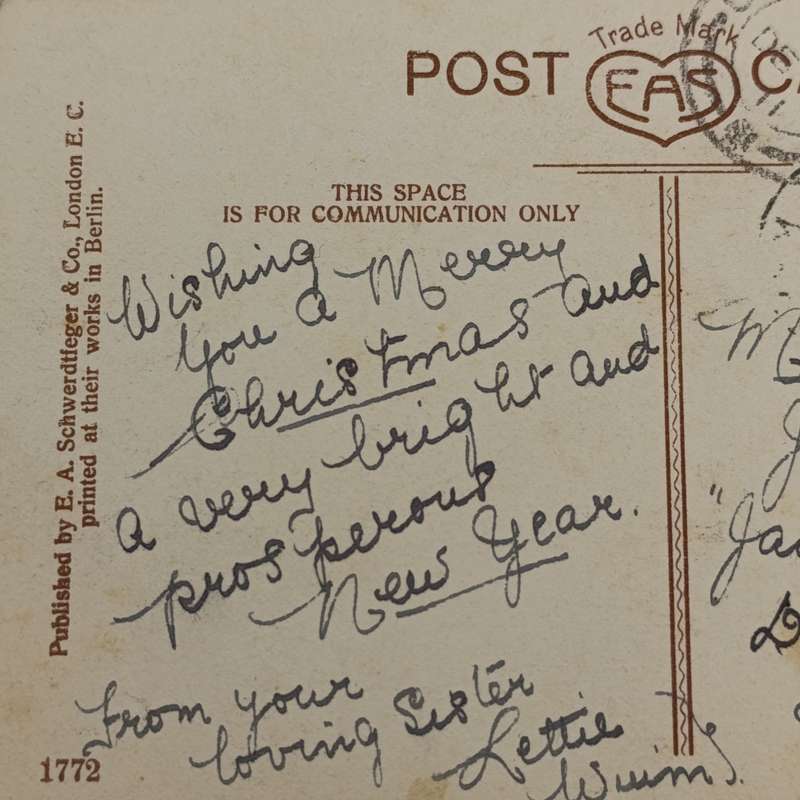 POST
Trade Mark
EAS
THIS SPACE
IS FOR COMMUNICATION ONLY
Wishing
you a Merry
Christmas and
a very bright and
prosperous
New Year.
From your
loving Sister
Lettie
Published by E. A. Schwerdtfeger & Co., London E. C.
printed at their works in Berlin.
1772